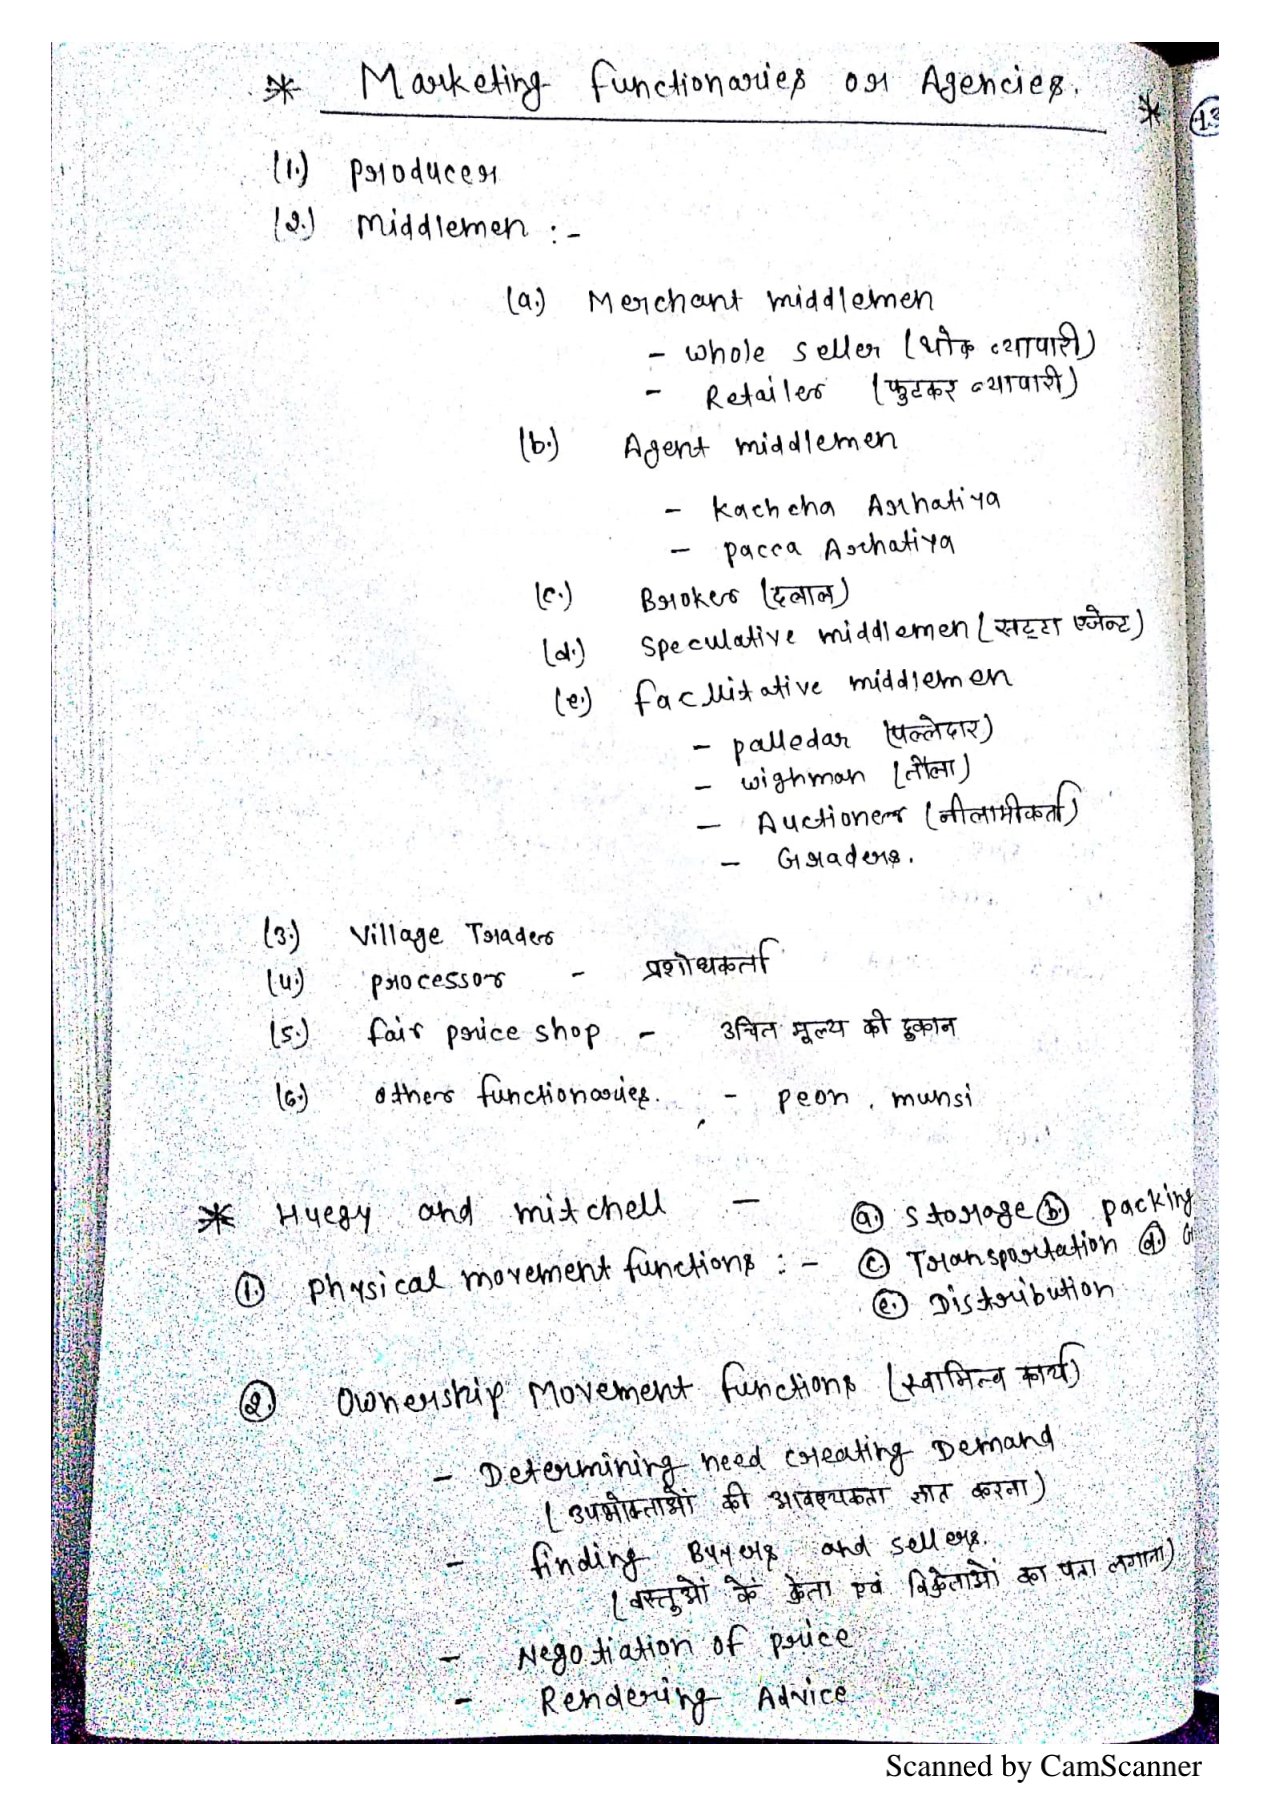 * Marketing functionaries or Agencies. *
13
(1.) Producer
(2.) Middlemen :-
(a.) Merchant middlemen
- whole seller (थोक व्यापारी)
- Retailer (फुटकर व्यापारी)
(b.) Agent middlemen
- kachcha Arhatiya
- pacca Arhatiya
(c.) Broker (दलाल)
(d.) Speculative middlemen (सट्टा एजेन्ट)
(e.) middlemen
- palledar (पल्लेदार)
- wighman (तौला)
- Auctioner (नीलामीकर्ता)
- Graders.
(3.) Village Trader
(4.) processor - प्रशोधकर्ता
(5.) fair price shop - उचित मूल्य की दुकान
(6.) others functionaries. - peon, munsi
* Huegy and mitchell - (a.) Storage (b.) packing
(1.) physical movement functions :- (c.) Transportation (d.) G
(e.) Distribution
(2.) Ownership Movement functions (स्वामित्व कार्य)
- Determining need creating Demand
(उपभोक्ताओं की आवश्यकता ज्ञात करना)
- finding Buyers and sellers.
(वस्तुओं के क्रेता एवं विक्रेताओं का पता लगाना)
- Negotiation of price
- Rendering Advice
Scanned by CamScanner